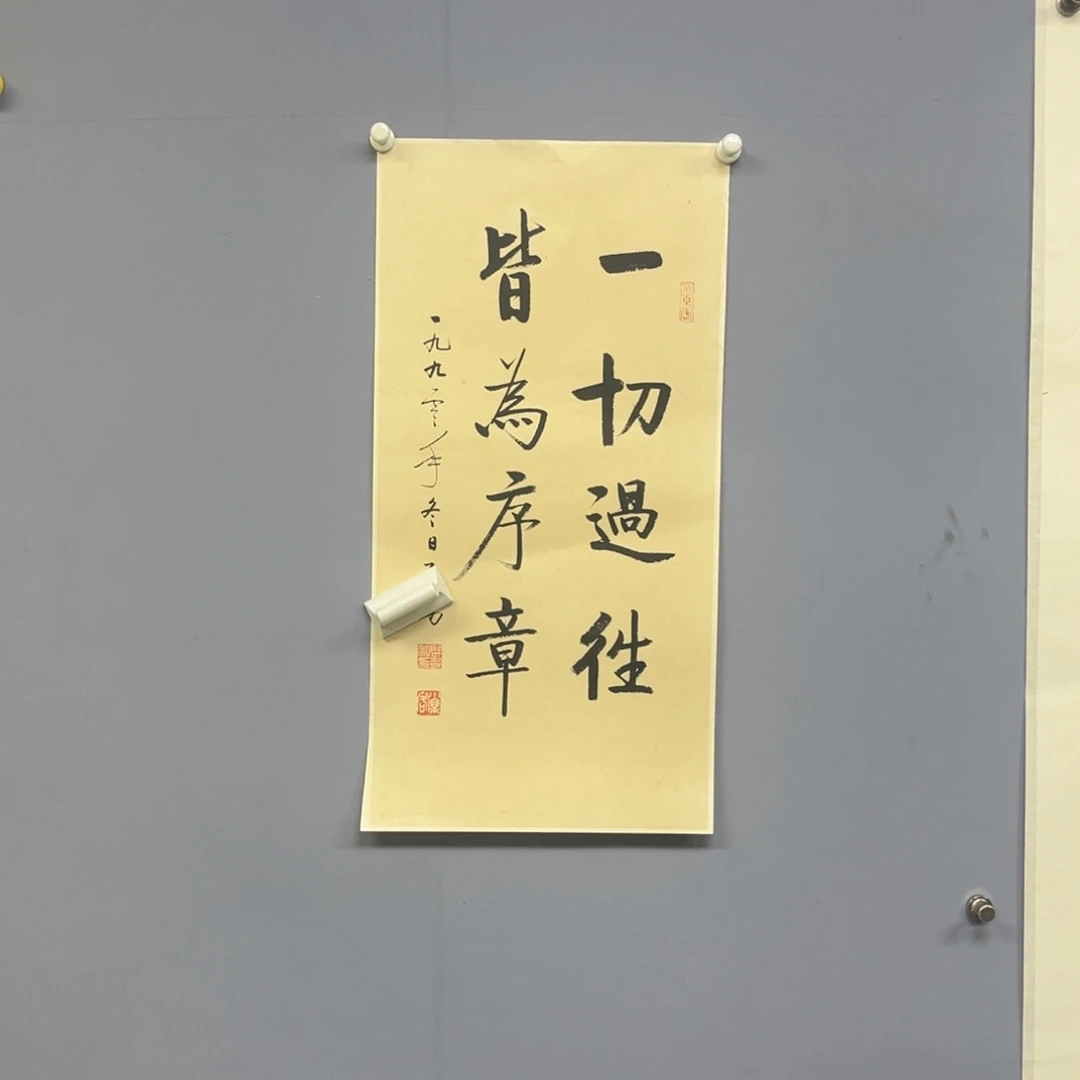 一切過往
皆為序章
一九九零年冬日